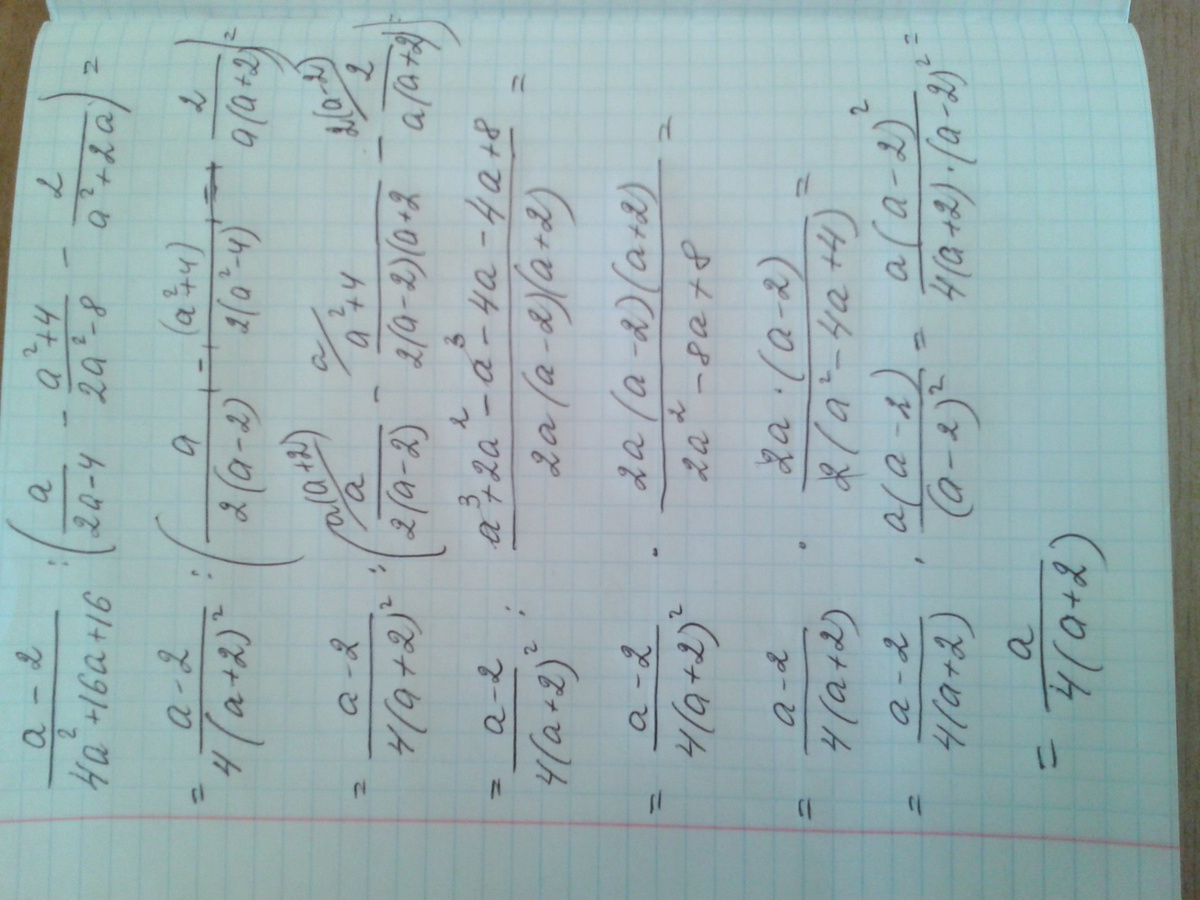 (a-2)/(4a²+16a+16) : (a/(2a-4) - (a²+4)/(2a²-8) - 2/(a²+2a)) =
= (a-2)/(4(a+2)²) : (a/(2(a-2)) - (a²+4)/(2(a²-4)) - 2/(a(a+2))) =
a(a+2) a 2(a-2)
= (a-2)/(4(a+2)²) : (a/(2(a-2)) - (a²+4)/(2(a-2)(a+2) - 2/(a(a+2))) :
= (a-2)/(4(a+2)²) : (a³+2a²-a³-4a-4a+8)/(2a(a-2)(a+2)) =
= (a-2)/(4(a+2)²) · (2a(a-2)(a+2))/(2a²-8a+8) =
= (a-2)/(4(a+2)) · (2a·(a-2))/(2(a²-4a+4)) =
= (a-2)/(4(a+2)) · (a(a-2))/((a-2)²) = (a(a-2)²)/(4(a+2)·(a-2)²) =
= a/(4(a+2))